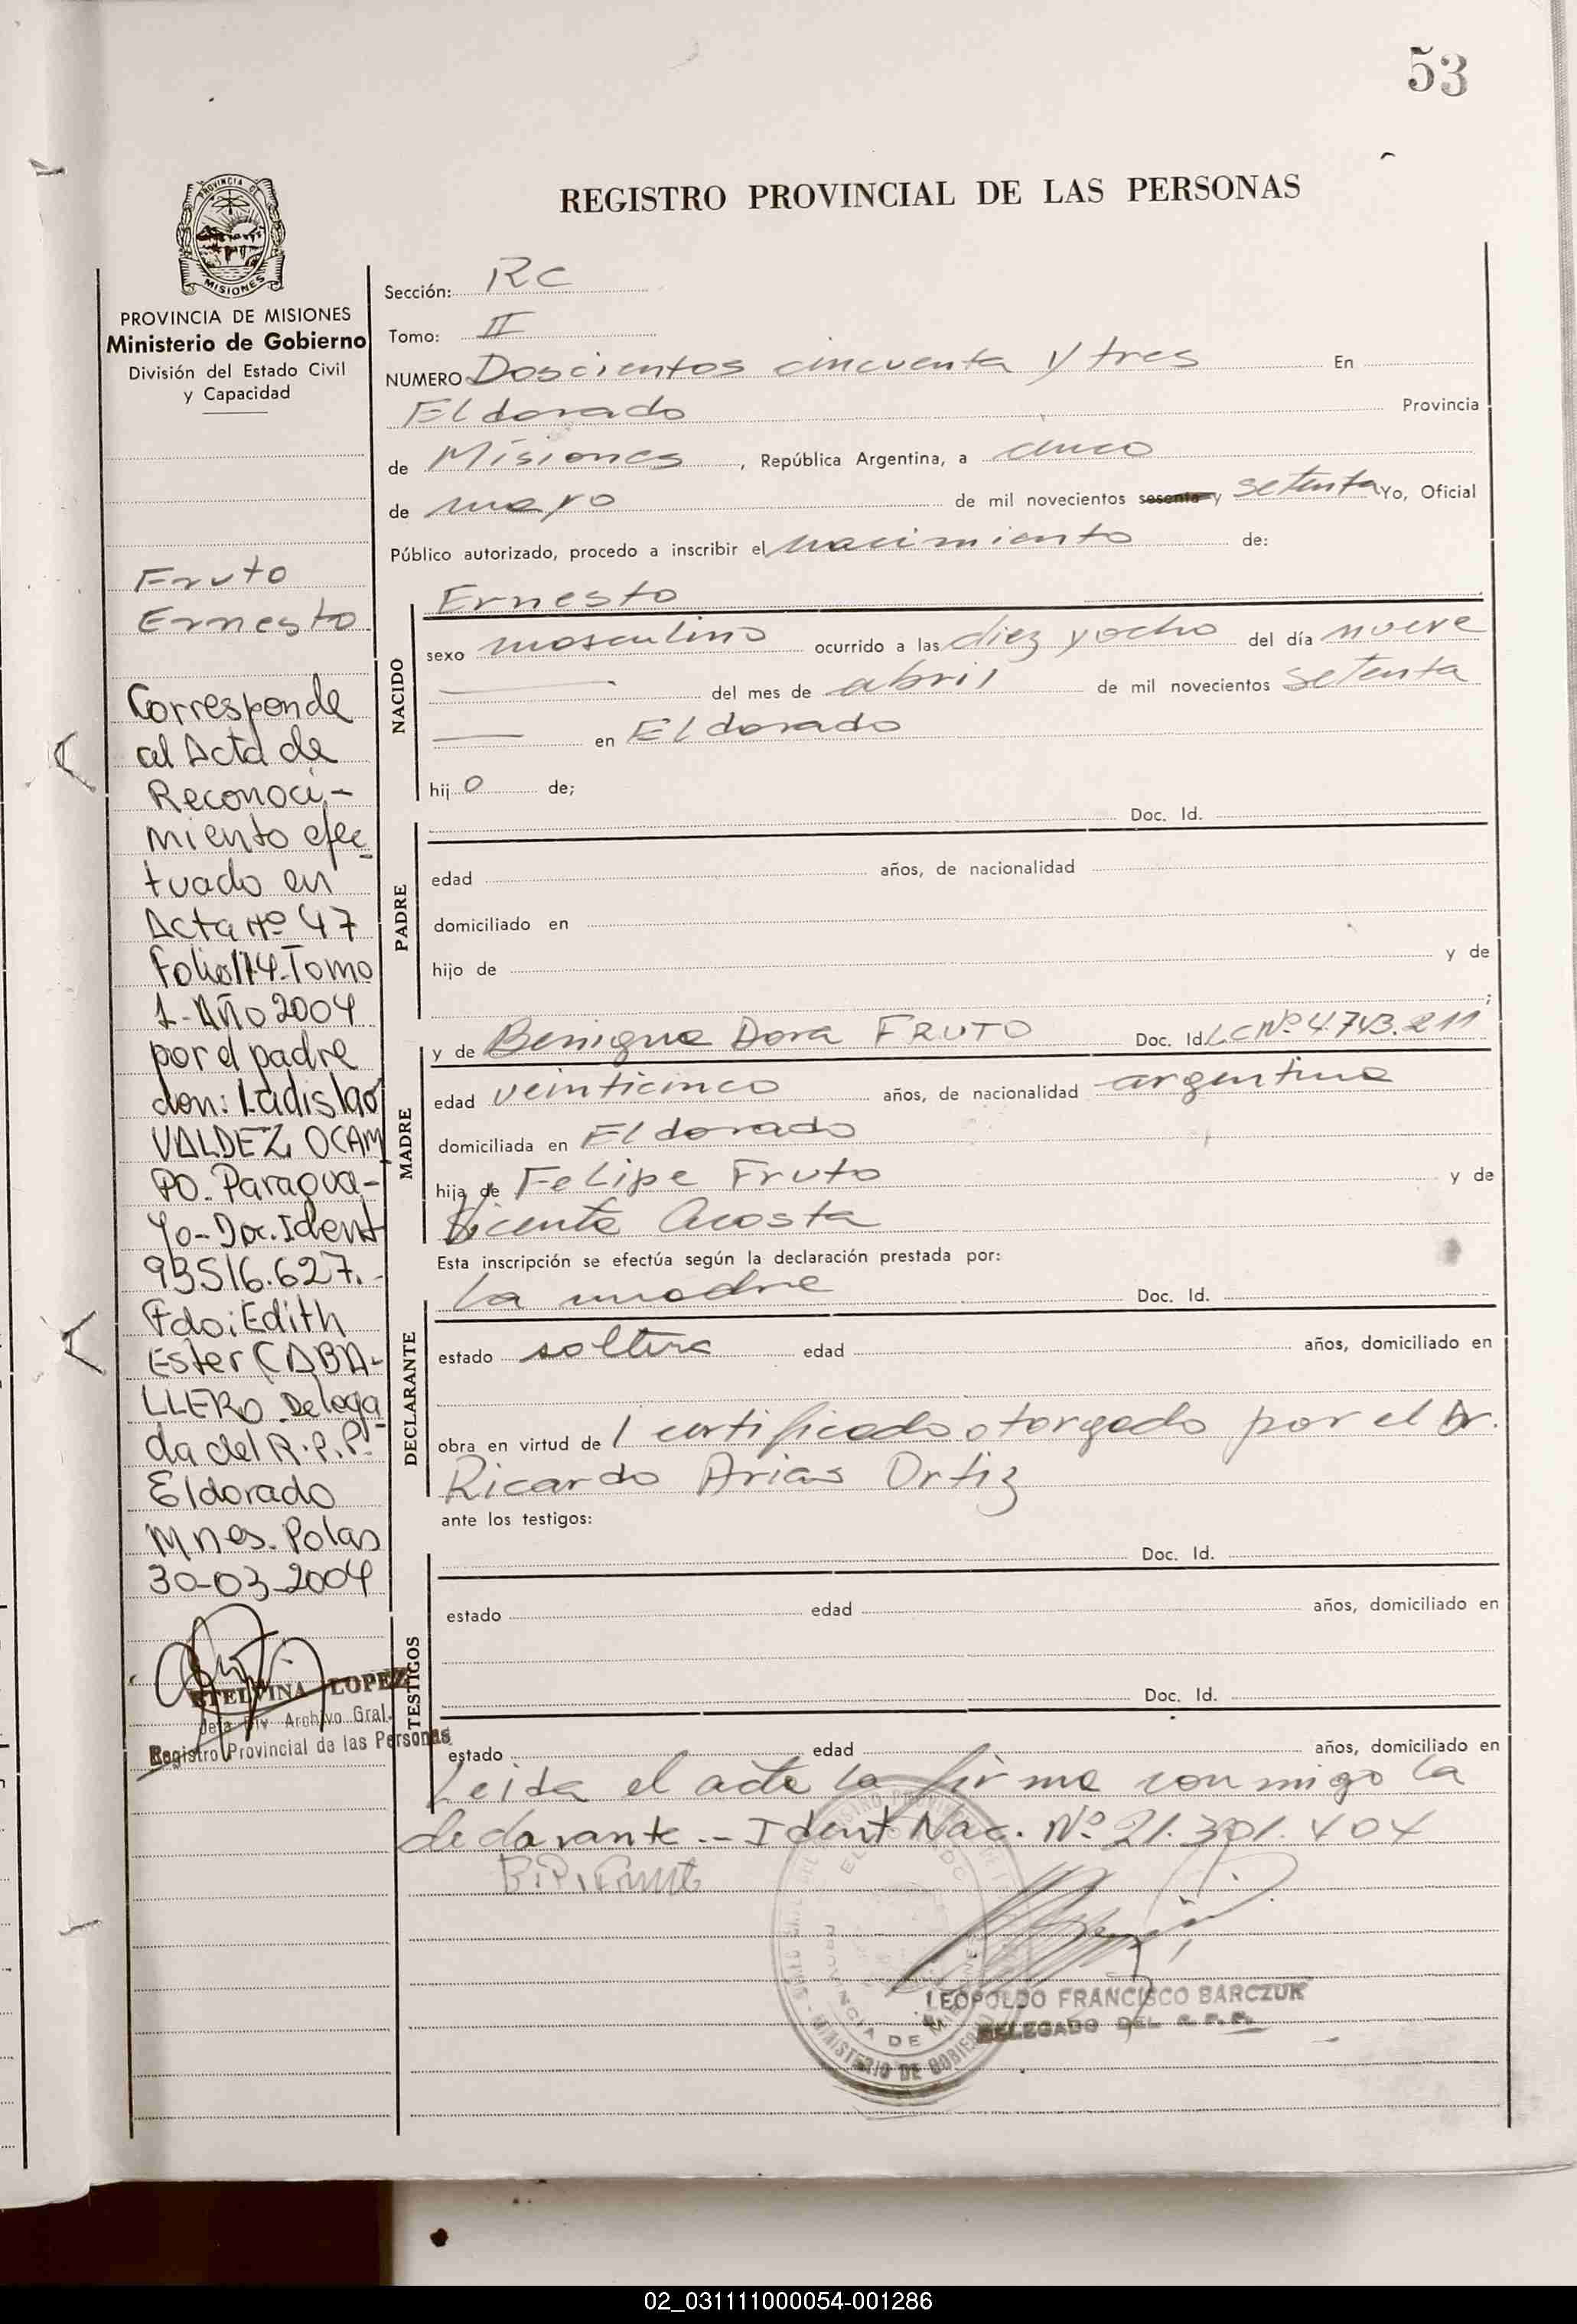 53
REGISTRO PROVINCIAL DE LAS PERSONAS
PROVINCIA DE
MISIONES
PROVINCIA DE MISIONES
Ministerio de Gobierno
División del Estado Civil
y Capacidad
Fruto
Ernesto
Corresponde
al Acta de
Reconoci-
miento efec
tuado en
Acta Nº 47
Folio 174-Tomo
1-Año 2004
por el padre
don: Ladislao
VALDEZ OCAM
PO. Paragua-
yo-Doc. Ident
93516.627.-
Fdo: Edith
Ester CABA-
LLERO Delega
da del R.P.P.
Eldorado
Mnes. Posas
30-03-2004
ETELVINA LOPEZ
Jefa Div Archivo Gral.
Registro Provincial de las Personas
Sección: RC
Tomo: II
NUMERO Doscientos cincuenta y tres En
Eldorado Provincia
de Misiones, República Argentina, a cinco
de mayo de mil novecientos sesenta y setenta Yo, Oficial
Público autorizado, procedo a inscribir el nacimiento de:
Ernesto
NACIDO
sexo masculino ocurrido a las diez y ocho del día nueve
del mes de abril de mil novecientos setenta
en Eldorado
hijo de;
Doc. Id.
PADRE
edad años, de nacionalidad
domiciliado en
hijo de y de
;
y de Benigna Dora FRUTO Doc. Id. LC Nº 4.743.211
MADRE
edad veinticinco años, de nacionalidad argentina
domiciliada en Eldorado
hija de Felipe Fruto y de
Vicenta Acosta
Esta inscripción se efectúa según la declaración prestada por:
La madre Doc. Id.
DECLARANTE
estado soltera edad años, domiciliado en
obra en virtud de 1 certificado otorgado por el Dr.
Ricardo Arias Ortiz
ante los testigos:
Doc. Id.
TESTIGOS
estado edad años, domiciliado en
Doc. Id.
estado edad años, domiciliado en
Leida el acta la firma conmigo la
declarante.- Ident Nac. Nº 21.301.404
LEOPOLDO FRANCISCO BARCZUK
DELEGADO DEL R. P. P.
PROVINCIA DE MISIONES
MINISTERIO DE GOBIERNO
02_031111000054-001286